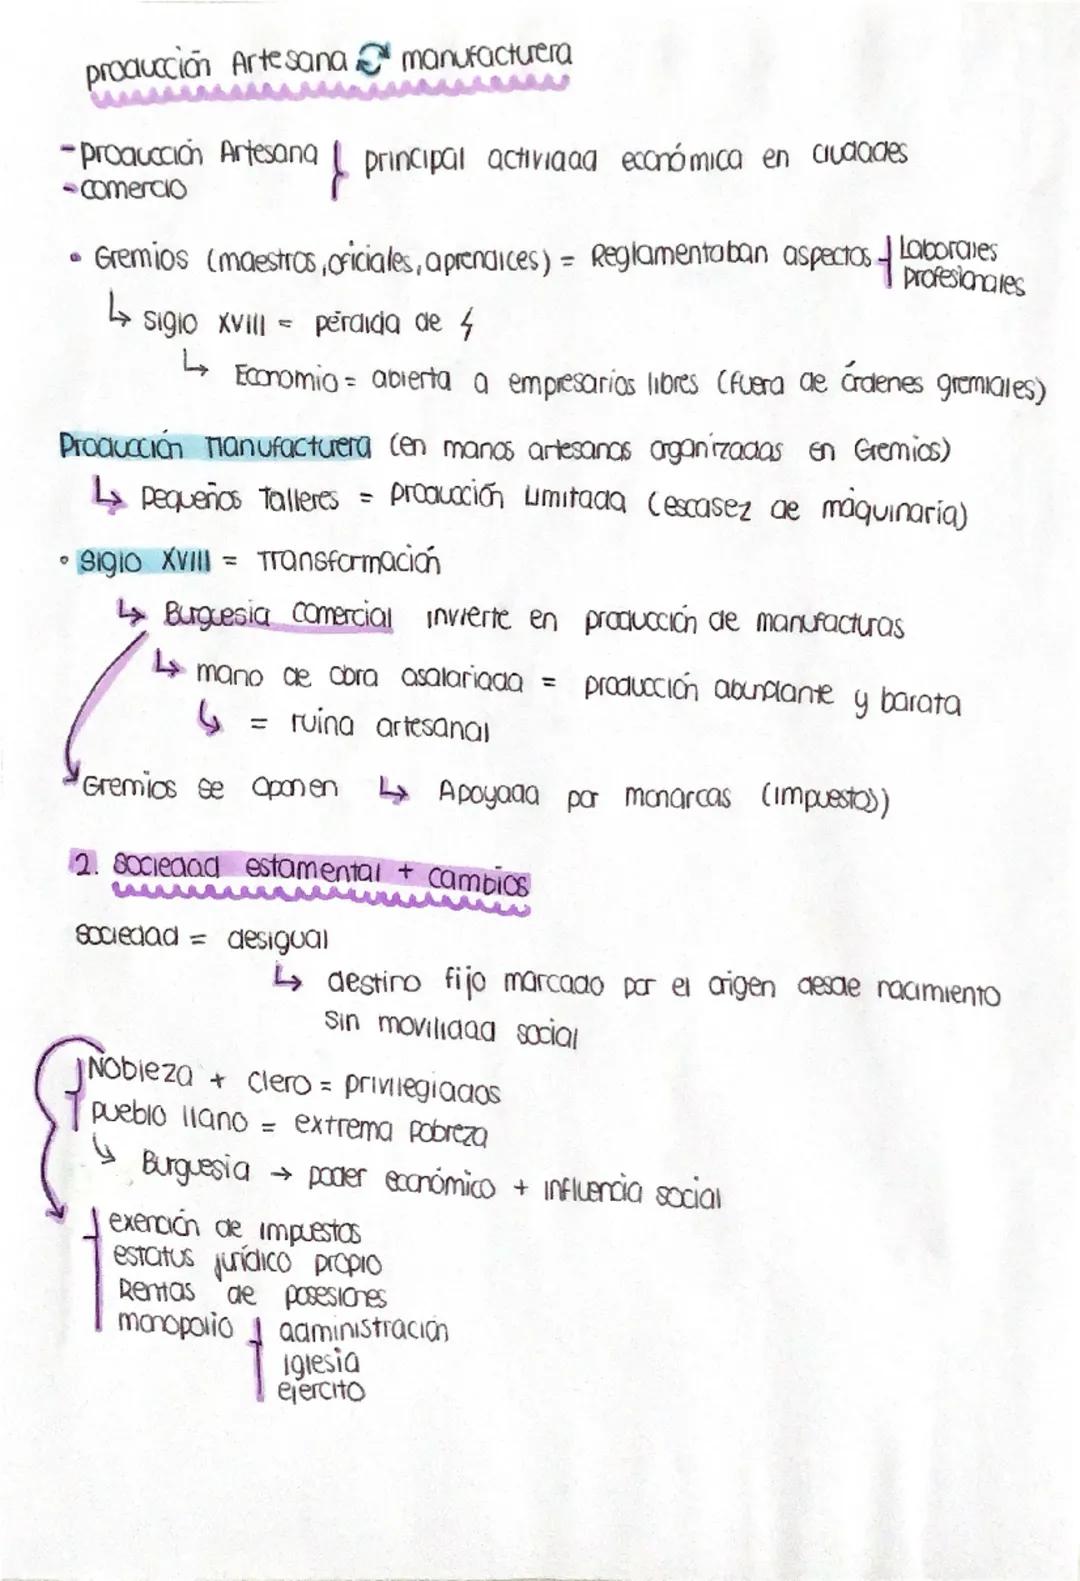 producción Artesana manufacturera
- producción Artesana
- comercio
principal actividad económica en ciudades
• Gremios (maestros, oficiales, aprendices) = Reglamentaban aspectos
Laborales
profesionales
↳ siglo XVIII = pérdida de ⚡
↳ Economía = abierta a empresarios libres (fuera de órdenes gremiales)
Producción manufacturera (en manos artesanos organizadas en Gremios)
↳ pequeños Talleres = producción Limitada (escasez de máquinaria)
• siglo XVIII = Transformación
↳ Burguesia comercial invierte en producción de manufacturas
↳ mano de obra asalariada = producción abundante y barata
↳ = ruina artesanal
Gremios se oponen ↳ Apoyada por monarcas (impuestos)
2. sociedad estamental + cambios
sociedad = desigual
↳ destino fijo marcado por el origen desde nacimiento
sin movilidad social
Nobleza + clero = privilegiados
pueblo llano = extrema pobreza
↳ Burguesia → poder económico + influencia social
exención de impuestos
estatus jurídico propio
Rentas de posesiones
monopolio
administración
iglesia
ejercito